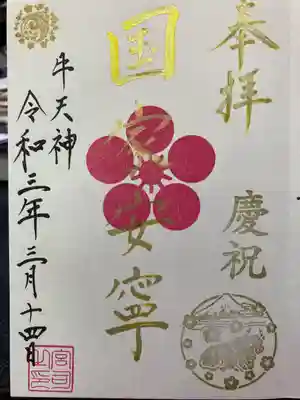 奉拝
慶祝
国家安寧
牛天神
令和三年三月十四日